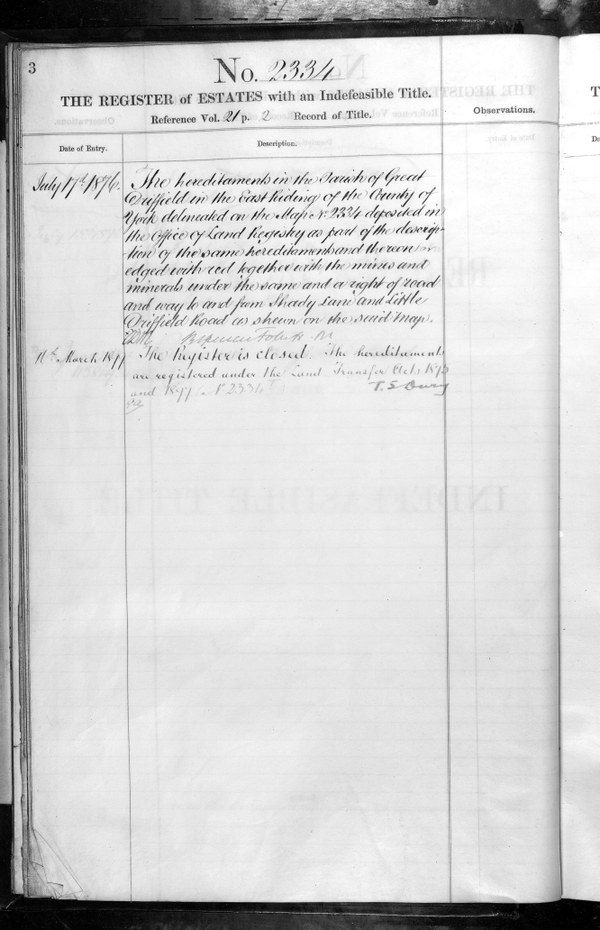 3
No. 2334
THE REGISTER of ESTATES with an Indefeasible Title.
Reference Vol. 21 p. 2 Record of Title.
Observations.
Date of Entry.
Description.
July 17th 1876.
The hereditaments in the Parish of Great
Driffield in the East Riding of the County of
York delineated on the Map No 2334 deposited in
the Office of Land Registry as part of the descrip-
tion of the same hereditaments and thereon
edged with red together with the mines and
minerals under the same and a right of road
and way to and from Shady Lane and Little
Driffield Road as shewn on the said Map.
March 1877
The Register is closed. The hereditaments
are registered under the Land Transfer Acts 1875
and 1897 No 2334